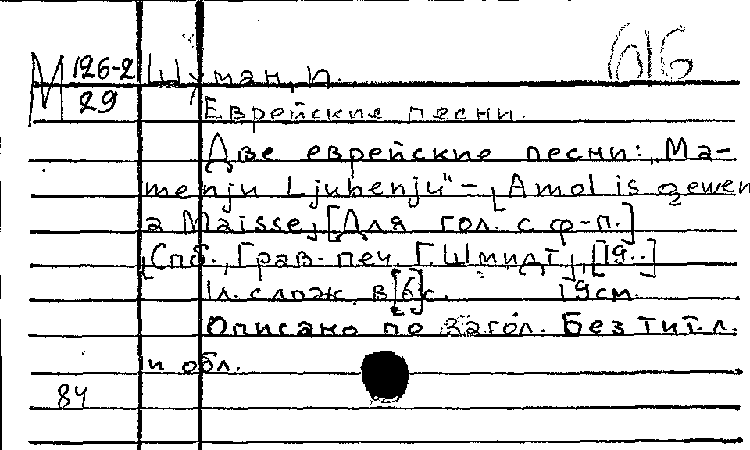 616
М 126-2 Шуман, П.
29 Еврейские песни.
Две еврейские песни: "Ma-
menju Ljubenju" - "Amol is gewen
a Maisse" [Для гол. с ф-п.]
[Спб., Грав.-печ. Г. Шмидт], [19..]
1 л. слож. в [6] с. 19 см.
Описано по загол. Без тит. л.
и обл.
84